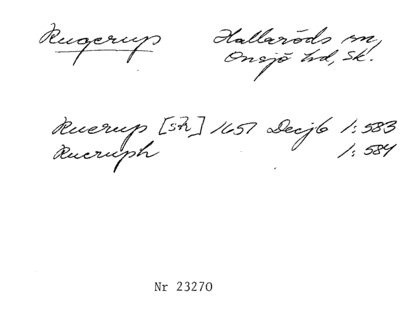 Rugerup Hallaröds sn,
Onsjö hd, Sk.
Rucrup [sk] 1651 Decjb 1:583
Rucruph 1:584
Nr 23270